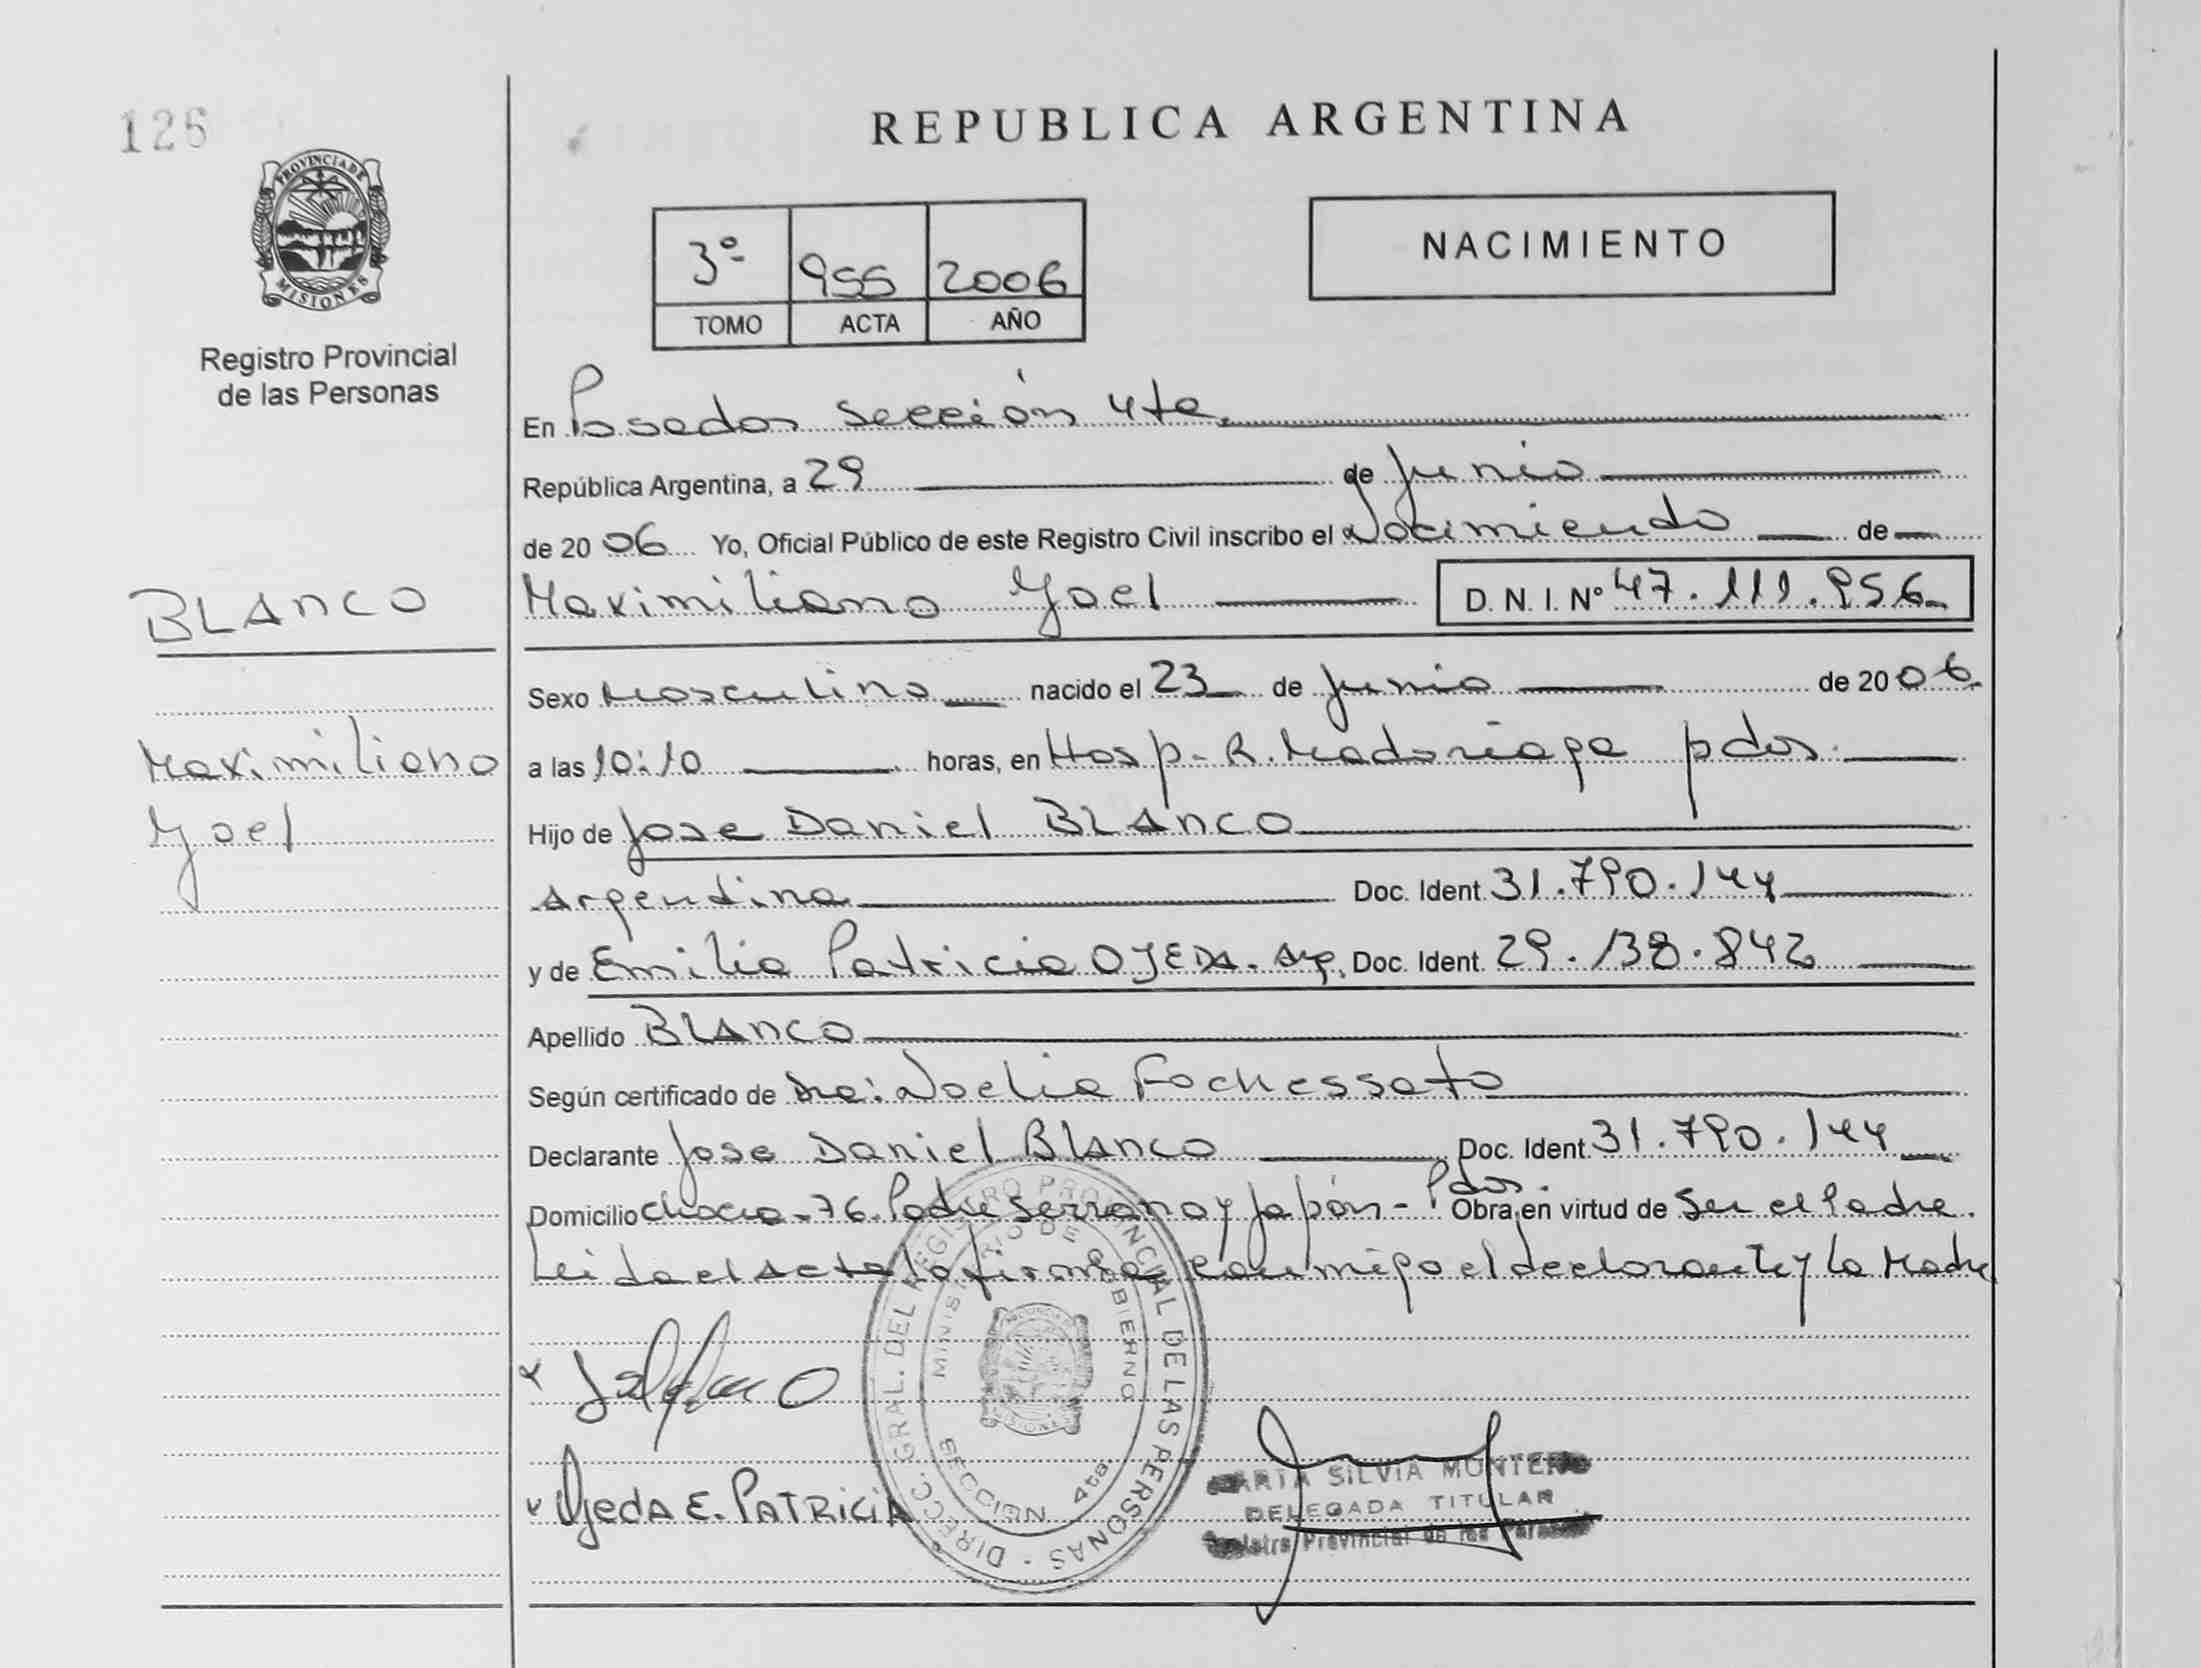 126
PROVINCIA DE
MISIONES
Registro Provincial
de las Personas
REPUBLICA ARGENTINA
3º 955 2006
TOMO ACTA AÑO
NACIMIENTO
En Posadas Sección 4ta.
República Argentina, a 29 de Junio
de 20 06 Yo, Oficial Público de este Registro Civil inscribo el Nacimiento de
BLANCO
Maximiliano Yoel D. N. I. Nº 47.111.956
Sexo Masculino nacido el 23 de Junio de 20 06.
Maximiliano
Yoel
a las 10:10 horas, en Hosp. R. Madariaga pdas.
Hijo de Jose Daniel BLANCO
Argentina Doc. Ident. 31.790.144
y de Emilia Patricia OJEDA. Arg. Doc. Ident. 29.138.842
Apellido BLANCO
Según certificado de Dra: Noelia Fochessato
Declarante Jose Daniel Blanco Doc. Ident. 31.790.144
Domicilio Chacra. 76. Padre Serrano y Japón - Pdas. Obra en virtud de Ser el Padre.
Leida el Acta la firman conmigo el declarante y la Madre
Ojeda E. PATRICIA
DIRECC. GRAL. DEL REGISTRO PROVINCIAL DE LAS PERSONAS
MINISTERIO DE GOBIERNO
SECCION 4ta.
MARIA SILVIA MONTERO
DELEGADA TITULAR
Registro Provincial de las Personas